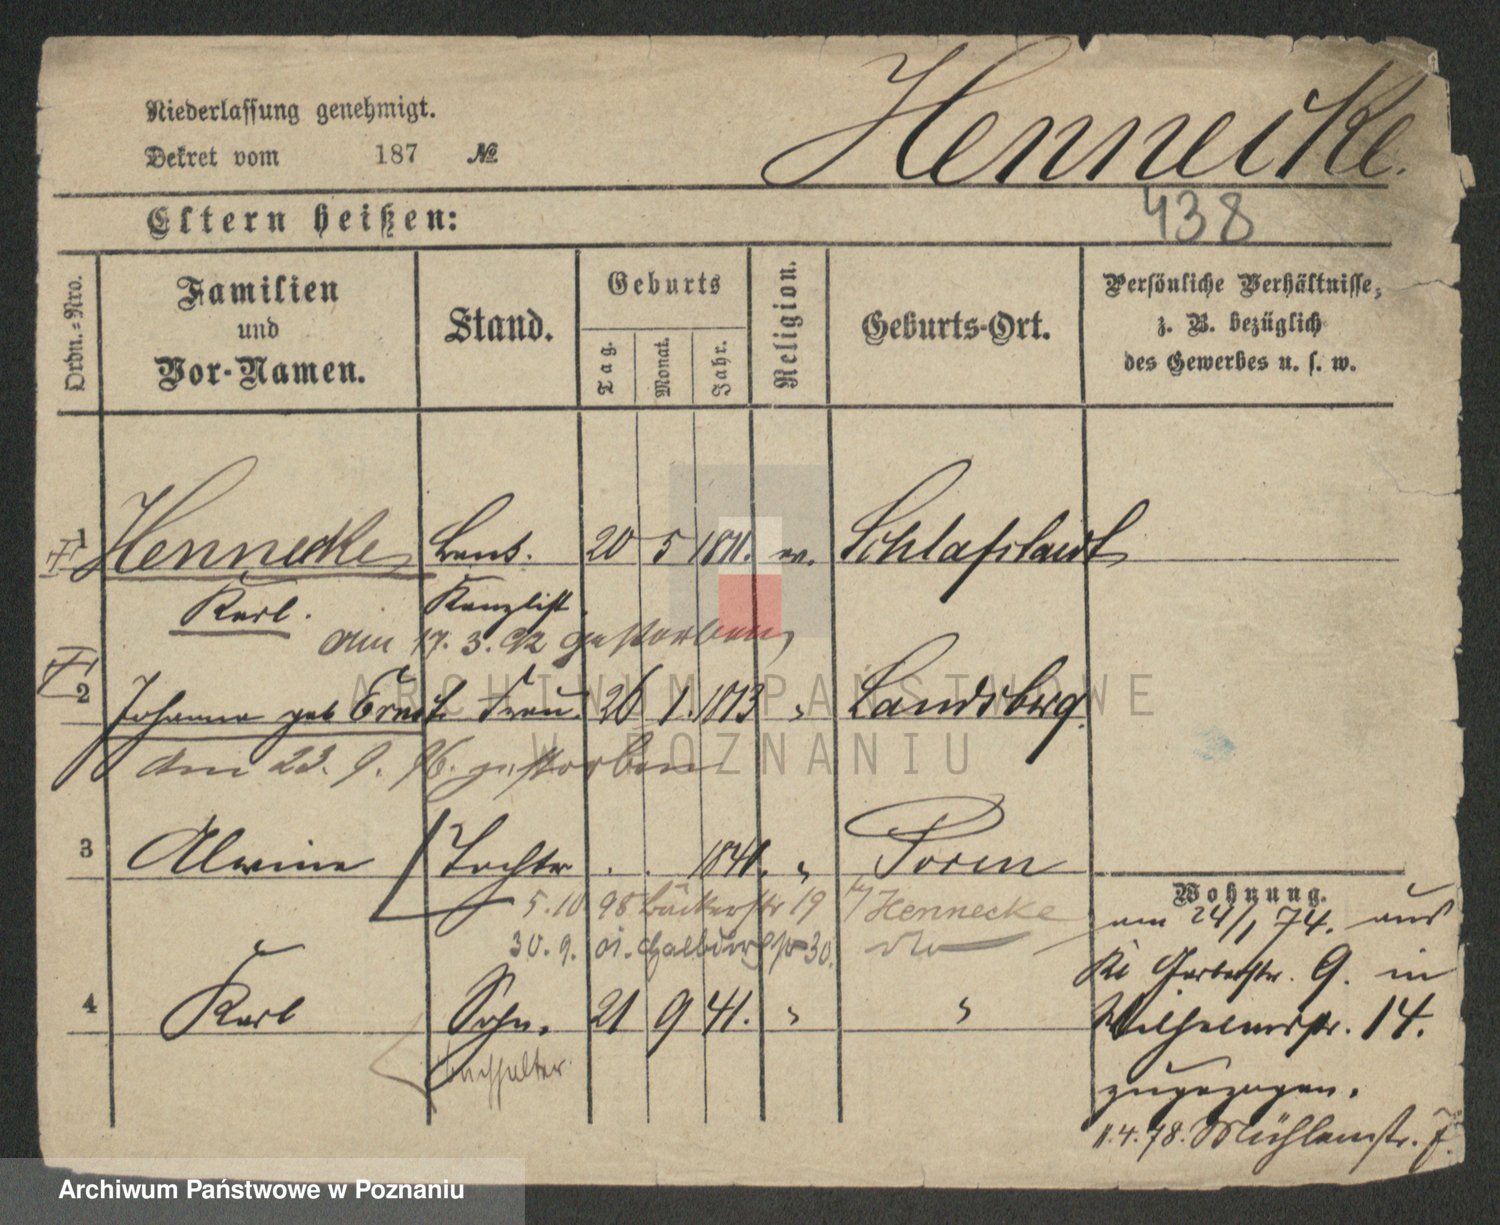 Niederlassung genehmigt.
Dekret vom 187 №
Hennecke.
438
Eltern heißen:
Ordn.-Nro.
Familien und Vor-Namen.
Stand.
Geburts
Tag.
Monat.
Jahr.
Religion.
Geburts-Ort.
Persönliche Verhältnisse, z. B. bezüglich des Gewerbes u. s. w.
1 Hennecke 20 5 1811. ev.
Karl. Kanzlist.
am 17. 3. 92 gestorben
2 Johanna geb 26 1. 1813 " Landsberg
am 23. 9. 96. gestorben
3 Alwine Tochter . . 1841. " Posen
5.10 98 Bäckerstr 19 Hennecke
30. 9. 01. 30. dto
4 Karl Sohn. 21 9 41. " "
Buchhalter
Wohnung.
am 24/1 74. aus
Kl Gerberstr. 9. in
Wilhelmstr. 14.
zugezogen.
11.4.78. Mühlenstr. 7.
ARCHIWUM PAŃSTWOWE
W POZNANIU
Archiwum Państwowe w Poznaniu